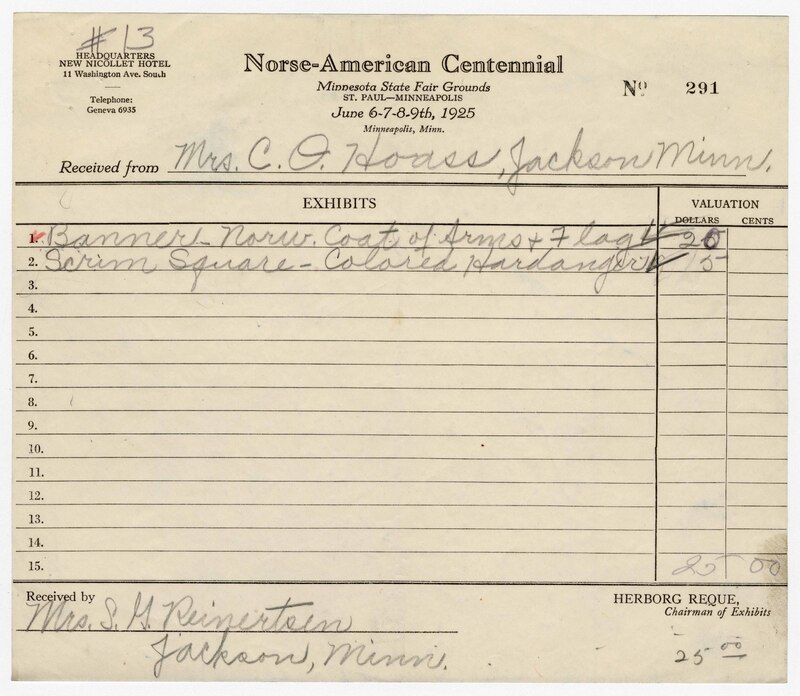 #13
HEADQUARTERS
NEW NICOLLET HOTEL
11 Washington Ave. South
Telephone:
Geneva 6935
Norse-American Centennial
Minnesota State Fair Grounds
ST. PAUL—MINNEAPOLIS
June 6-7-8-9th, 1925
Minneapolis, Minn.
No 291
Received from Mrs. C. O. Hoass, Jackson Minn.
EXHIBITS VALUATION
DOLLARS CENTS
1. Banner - Norw. Coat of Arms + Flag 20
2. Scrim Square - Colored Hardanger 5
3.
4.
5.
6.
7.
8.
9.
10.
11.
12.
13.
14.
15. 25 00
Received by
Mrs. S. G. Reinertsen
Jackson, Minn.
HERBORG REQUE,
Chairman of Exhibits
25 00